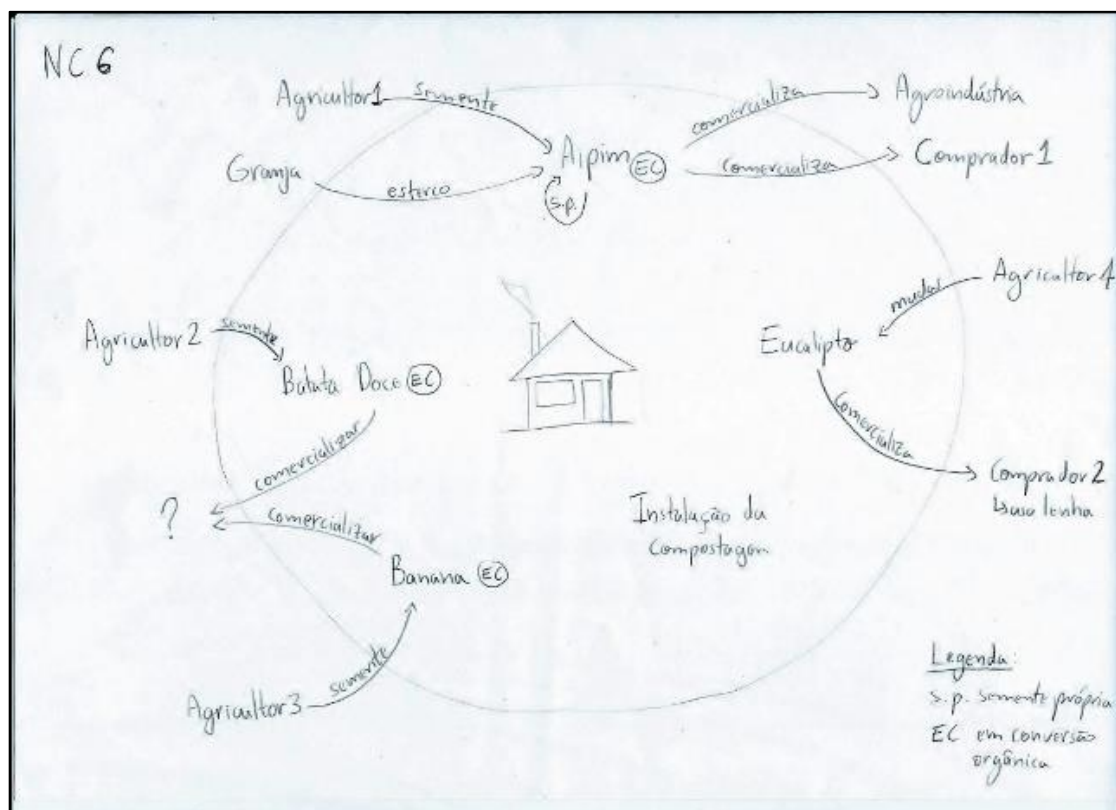 NC 6
Agricultor 1
semente
Aipim EC
comercializa
Agroindústria
comercializa
Comprador 1
Granja
esterco
s.p.
Agricultor 4
mudas
Eucalipto
comercializa
Comprador 2
↳ uso lenha
Agricultor 2
semente
Batata Doce EC
comercializar
?
comercializar
Banana EC
semente
Agricultor 3
Instalação da
compostagem
Legenda:
s.p. semente própria
EC em conversão
orgânica